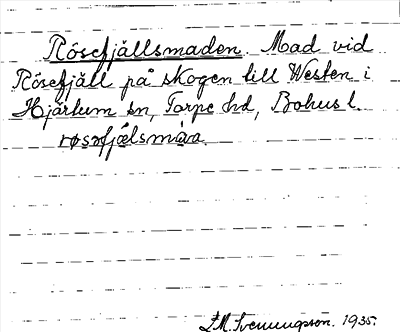 Rösefjällsmaden. Mad vid
Rösefjäll på skogen till Westen i
Hjärtum sn, Torpe hd, Bohus l.
røsəfjælsmáa.
E.M. Svenungson. 1935.